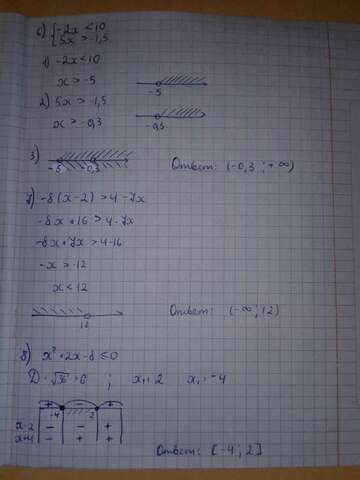 6) { -2x < 10
5x > -1,5
1) -2x < 10
x > -5
-5
2) 5x > -1,5
x > -0,3
-0,3
3)
-5 -0,3
Ответ: (-0,3 ; +∞)
7) -8(x-2) > 4-7x
-8x+16 > 4-7x
-8x+7x > 4-16
-x > -12
x < 12
12
Ответ: (-∞ ; 12)
8) x²+2x-8 ≤ 0
D = √36 = 6 ; x₁ = 2 x₂ = -4
+ - +
-4 2
x-2 - - +
x+4 - + +
Ответ: [-4 ; 2]